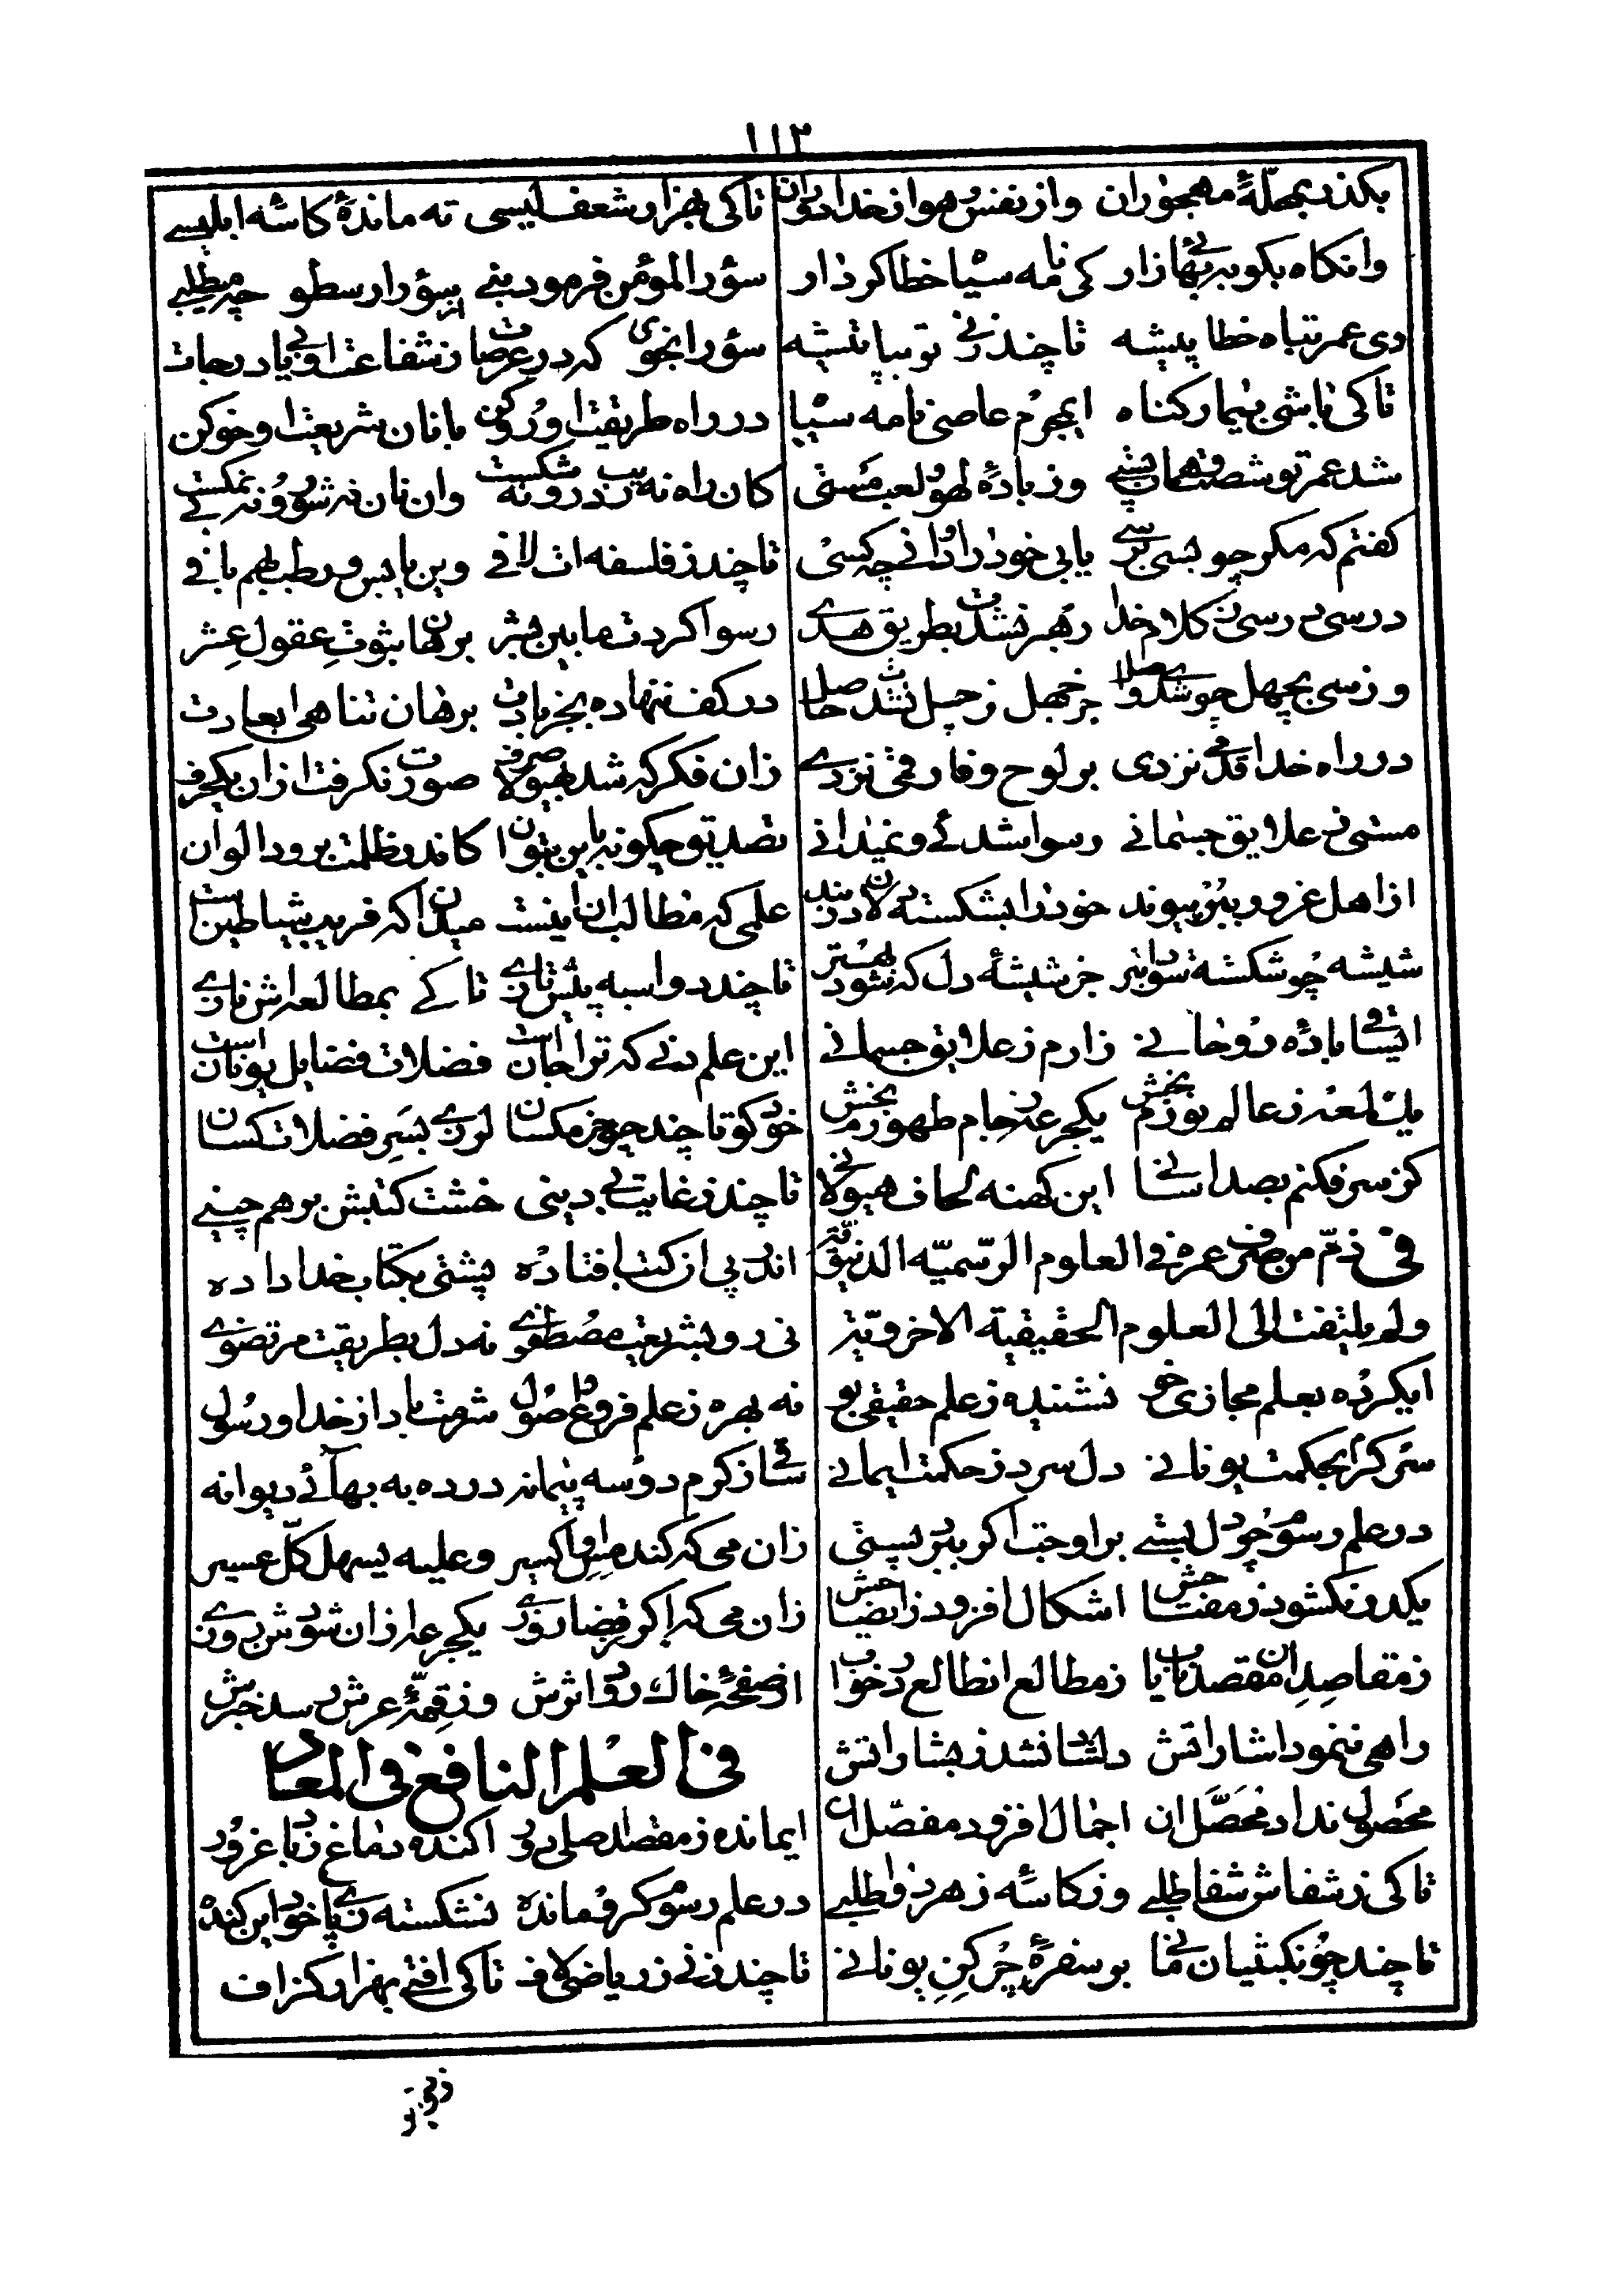 ١١٣
بکذر بمحلّهٔ مهجوران وازنفس و هوا زخدا دوران
وانکاه بکو به بهائی زار کی نامه سیاه خطا کردار
وی عمر تباه خطا پیشه تا چند زنی تو بپا تیشه
تا کی باشی بیمار کناه ای مجرم عاصی نامه سیاه
شد عمر تو شصت و همان پستی وز بادهٔ لهو و لعب مستی
کفتم که مکر چو بسی برسی یابی خود را دانی چه کسی
درسی درسی ز کلام خدا رهبر نشدت بطریق هدی
وز سی بچهل چو شدی واصل جز جهل ز چهل نشدت حاصل
در راه خدا قدمی نزدی بر لوح وفا رقمی نزدی
مستی ز علایق جسمانی رسوا شدهٔ و نمیدانی
از اهل غرور ببر پیوند خود را بشکسته دلان دربند
شیشه چو شکسته شود ابتر جز شیشهٔ دل که شود بهتر
ای ساقی بادهٔ روحانی زارم ز علایق جسمانی
یک لمعه ز عالم نورم بخش یکجرعه ز جام طهورم بخش
کز سر فکنم بصد آسانی این کهنه لحاف هیولانی
فی ذمّ من صرف عمره فی العلوم الرّسمیّه الدنیویّة
ولم یلتفت الی العلوم الحقیقیة الاخرویّة
ایکرده بعلم مجازی خو نشنیده ز علم حقیقی بو
سرکرم بحکمت یونانی دل سرد ز حکمت ایمانی
در علم رسوم چو دل بستی بر اوجت اکر ببرد پستی
یکدر نکشود ز مفتاحش اشکال افزود ز ایضاحش
ز مقاصد ان مقصد نایاب ز مطالع ان طالع در خواب
راهی ننمود اشاراتش دلشاد نشد ز بشاراتش
محصول نداد محصّل ان اجمال افزود مفصّل ان
تا کی ز شفاش شفا طلبی وز کاسهٔ زهر دوا طلبی
تا چند چو نکبتیان مانی بر سفرهٔ چرکن یونانی
تا کی بهزار شعف لیسی ته ماندهٔ کاسهٔ ابلیسی
سؤر المؤمن فرموده نبی از سؤر ارسطو چه میطلبی
سؤر انجوی که در عرصات ز شفاعت او یابی درجات
در راه طریقت او رو کن با نان شریعت او خو کن
کان راه نه ریب درو نه شکست وان نان نه شور و نه بی نمکست
تا چند ز فلسفه ات لافی وین یابس و رطب بهم بافی
رسوا کردت ما بین بشر برهان ثبوت عقول عشر
در کف ننهاده بجز بادت برهان تناهی ابعادت
زان فکر که شد بهیولا صرف صورت نکرفت ازان یکحرف
تصدیق چکونه باین بتوان کاندر ظلمت برود الوان
علمی که مطالب ان اینست میدان که فریب شیاطین است
تا چند دو اسبه پیش تازی تا کی بمطالعه اش نازی
این علم دنی که ترا جان است فضلات فضایل یونان است
خود کو تا چند چو خرمکسان لرزی بسر فضلات کسان
تا چند ز غایت بی دینی خشت کتبش بر هم چینی
اندر پی ان کتب افتاده پشتی بکتاب خدا داده
نی رو بشریعت مصطفوی نه دل بطریقت مرتضوی
نه بهره ز علم فروع و اصول شرمت بادا ز خدا و رسول
ساقی ز کرم دو سه پیمانه در ده به بهآئی دیوانه
زان می که کند مس او اکسیر و علیه یسهل کلّ عسیر
زان می که اکر ز قضا روزی یکجرعه ازان شودش روزی
از صفحهٔ خاک رود اثرش وز قمّهٔ عرش رسد خبرش
فی العلم النافع فی المعاد
ایمانده ز مقصد اصلی دور اکنده دماغ ز باد غرور
در علم رسوم کرو مانده نشکسته ز پای خود این کنده
تا چند زنی ز ریاضی لاف تا کی افتی بهزار کزاف